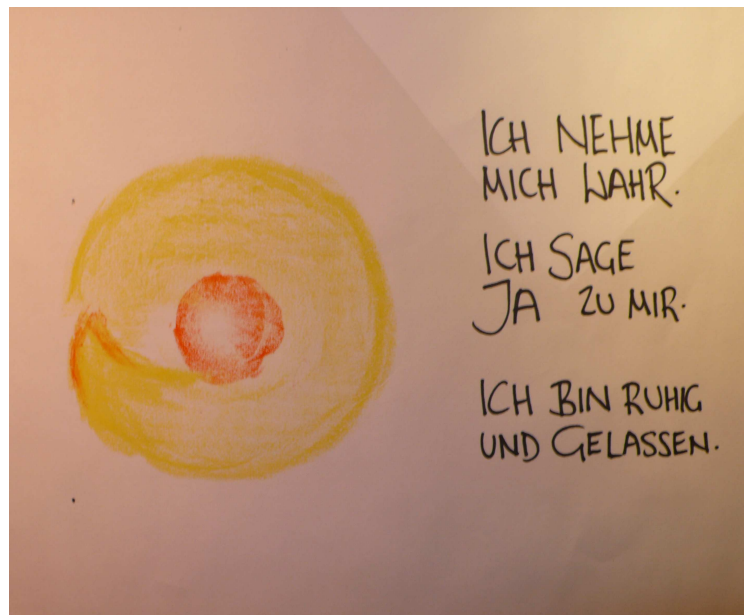 ICH NEHME
MICH WAHR.
ICH SAGE
JA ZU MIR.
ICH BIN RUHIG
UND GELASSEN.